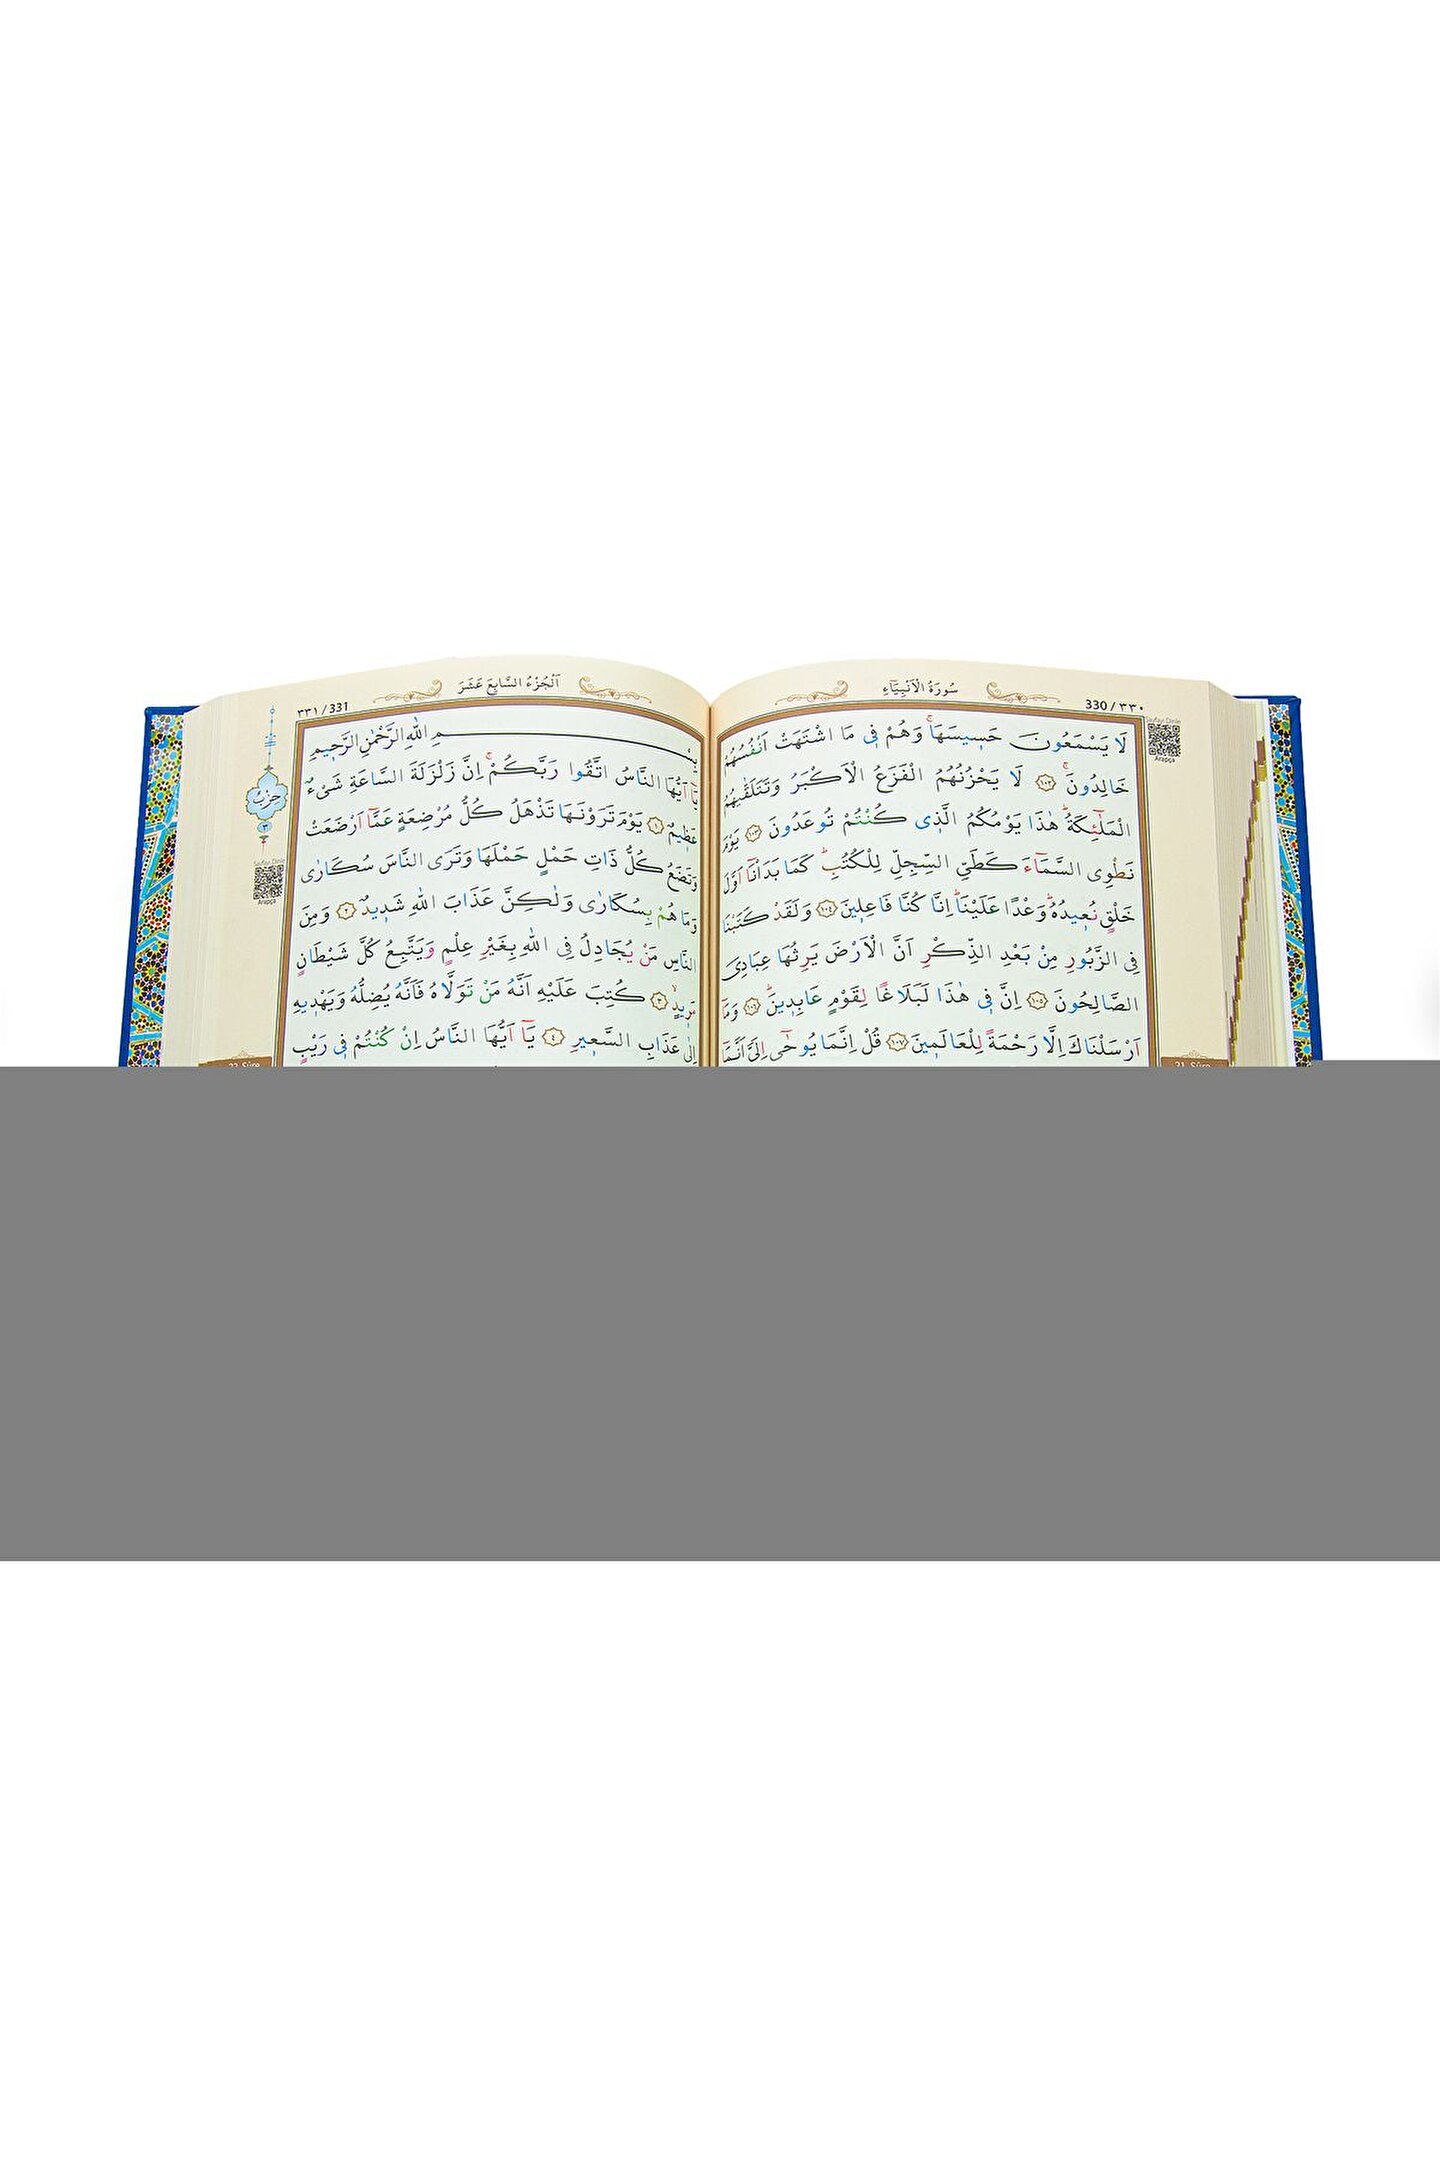 سُورَةُ الْاَنْبِيَٓاءِ
330 / ٣٣٠
Sayfayı Dinle
Arapça
لَا يَسْمَعُونَ حَسٖيسَهَاۚ وَهُمْ فٖي مَا اشْتَهَتْ اَنْفُسُهُمْ
خَالِدُونَۚ ﴿١٠٢﴾ لَا يَحْزُنُهُمُ الْفَزَعُ الْاَكْبَرُ وَتَتَلَقّٰيهُمُ
الْمَلٰٓئِكَةُؕ هٰذَا يَوْمُكُمُ الَّذٖي كُنْتُمْ تُوعَدُونَ ﴿١٠٣﴾ يَوْمَ
نَطْوِي السَّمَٓاءَ كَطَيِّ السِّجِلِّ لِلْكُتُبِؕ كَمَا بَدَأْنَٓا اَوَّلَ
خَلْقٍ نُعٖيدُهُؕ وَعْدًا عَلَيْنَاؕ اِنَّا كُنَّا فَاعِلٖينَ ﴿١٠٤﴾ وَلَقَدْ كَتَبْنَا
فِي الزَّبُورِ مِنْ بَعْدِ الذِّكْرِ اَنَّ الْاَرْضَ يَرِثُهَا عِبَادِيَ
الصَّالِحُونَ ﴿١٠٥﴾ اِنَّ فٖي هٰذَا لَبَلَاغًا لِقَوْمٍ عَابِدٖينَؕ ﴿١٠٦﴾ وَمَٓا
اَرْسَلْنَاكَ اِلَّا رَحْمَةً لِلْعَالَمٖينَ ﴿١٠٧﴾ قُلْ اِنَّمَا يُوحٰٓى اِلَيَّ اَنَّمَٓا
21. Sûre
اَلْجُزْءُ السَّابِعَ عَشَرَ
٣٣١ / 331
حزب
٣
Sayfayı Dinle
Arapça
بِسْمِ اللّٰهِ الرَّحْمٰنِ الرَّحٖيمِ
يَٓا اَيُّهَا النَّاسُ اتَّقُوا رَبَّكُمْۚ اِنَّ زَلْزَلَةَ السَّاعَةِ شَيْءٌ
عَظٖيمٌ ﴿١﴾ يَوْمَ تَرَوْنَهَا تَذْهَلُ كُلُّ مُرْضِعَةٍ عَمَّٓا اَرْضَعَتْ
وَتَضَعُ كُلُّ ذَاتِ حَمْلٍ حَمْلَهَا وَتَرَى النَّاسَ سُكَارٰى
وَمَا هُمْ بِسُكَارٰى وَلٰكِنَّ عَذَابَ اللّٰهِ شَدٖيدٌ ﴿٢﴾ وَمِنَ
النَّاسِ مَنْ يُجَادِلُ فِي اللّٰهِ بِغَيْرِ عِلْمٍ وَيَتَّبِعُ كُلَّ شَيْطَانٍ
مَرٖيدٍۙ ﴿٣﴾ كُتِبَ عَلَيْهِ اَنَّهُ مَنْ تَوَلَّاهُ فَاَنَّهُ يُضِلُّهُ وَيَهْدٖيهِ
اِلٰى عَذَابِ السَّعٖيرِ ﴿٤﴾ يَٓا اَيُّهَا النَّاسُ اِنْ كُنْتُمْ فٖي رَيْبٍ
22. Sûre